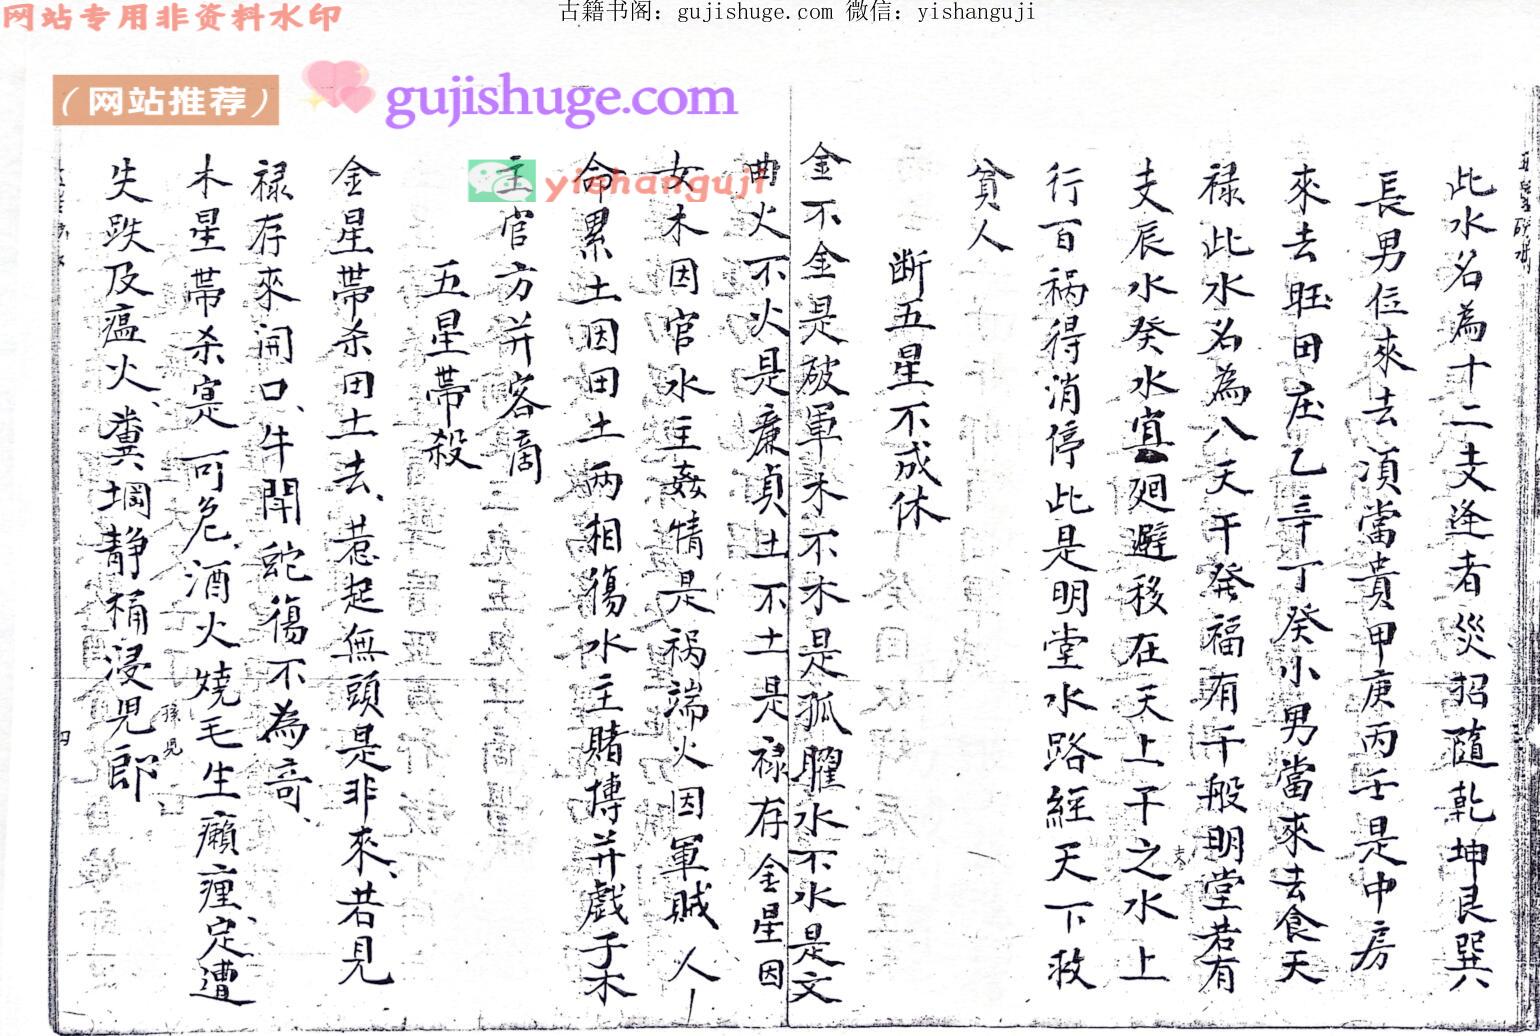 网站专用非资料水印
古籍书阁：gujishuge.com 微信：yishanguji
（网站推荐）
gujishuge.com
yishanguji
此水名為十二支逢者災招隨乾坤艮巽
長男位來去須當貴甲庚丙壬是中房
來去旺田庄乙辛丁癸小男當來去食天
禄此水名為八天干發福有千般明堂若有
支辰水癸水宜廻避移在天上干之水上
支
行百祸得消停此是明堂水路經天下救
貧人
断五星不成休
金不金是破軍木不木是孤臞水不水是文
曲火不火是廉貞土不土是禄存金星因
女木因官水主姦情是祸端火因軍贼人
命累土因田土两相傷水主賭博并戲子木
主官方并客商
五星帶殺
金星帶杀田土去、惹起無頭是非來、若見
禄存來開口、牛開蛇傷不為奇、
木星帶杀寔可危、酒火燒毛生癩瘇、定遭
失跌及瘟火、糞堈静桶浸児郎、
孫児
四